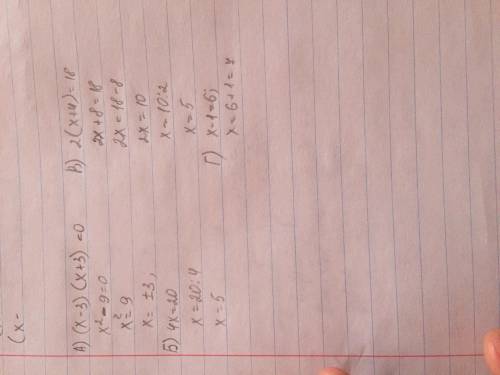 (x-
А) (x-3)(x+3)=0
x²-9=0
x²=9
x=±3;
Б) 4x=20
x=20:4
x=5
В) 2(x+4)=18
2x+8=18
2x=18-8
2x=10
x=10:2
x=5
Г) x-1=6;
x=6+1=7